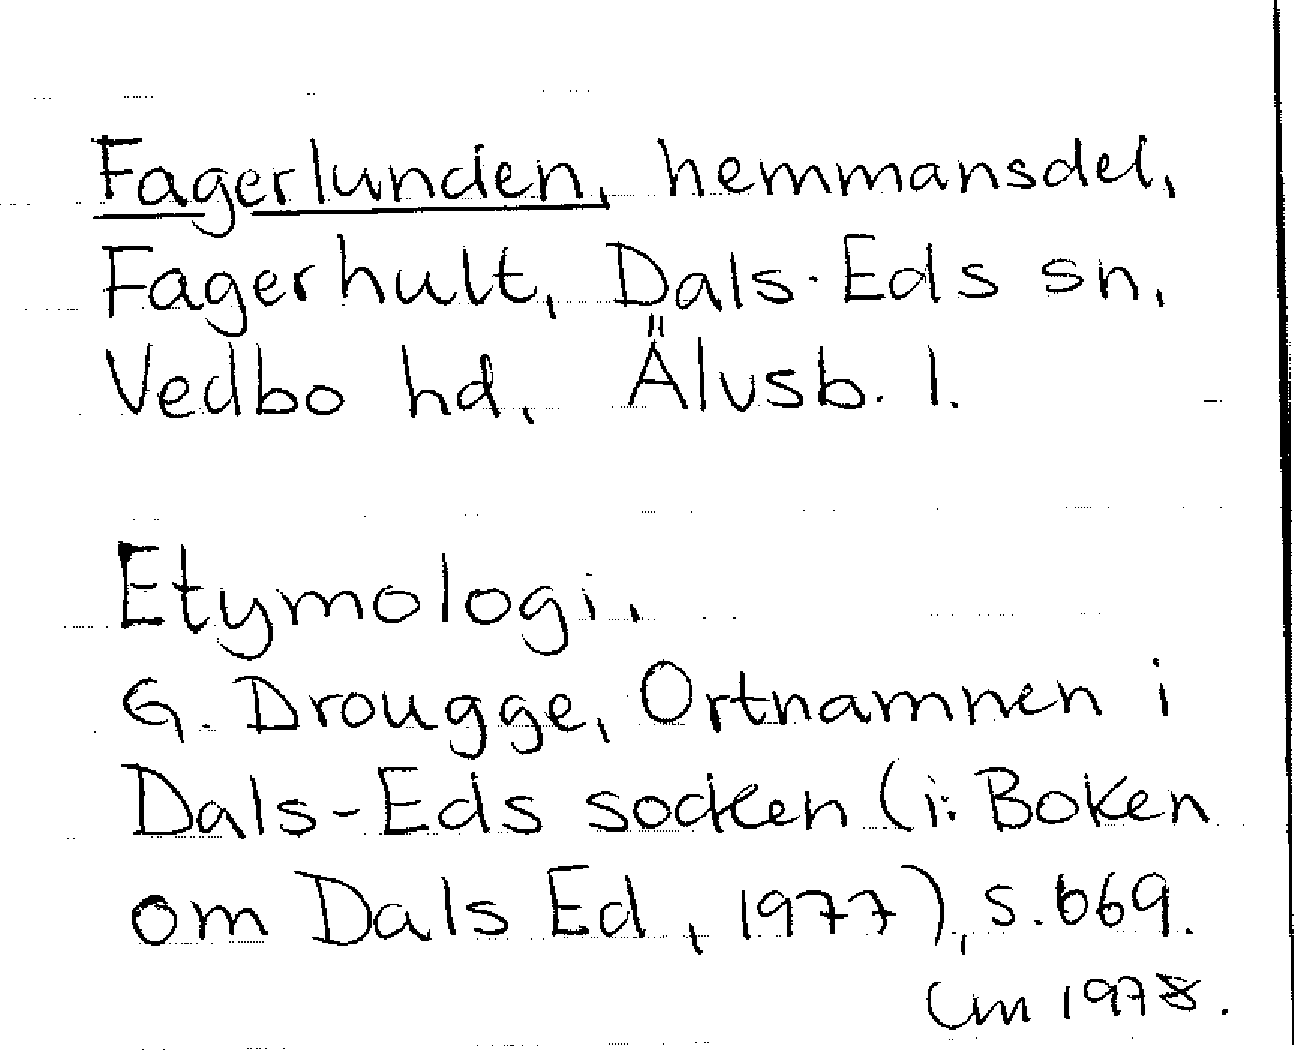 Fagerlunden, hemmansdel,
Fagerhult, Dals-Eds sn,
Vedbo hd, Älvsb. l.
Etymologi.
G. Drougge, Ortnamnen i
Dals-Eds socken (i: Boken
om Dals Ed, 1977), s. 669.
Cm 1978.